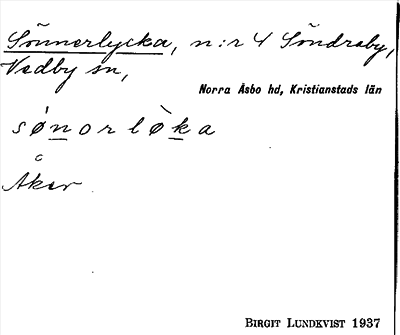 Sönnerlycka, n:r 4 Söndraby,
Vedby sn,
Norra Åsbo hd, Kristianstads län
sø̀norlø̀ka
Åker
BIRGIT LUNDKVIST 1937